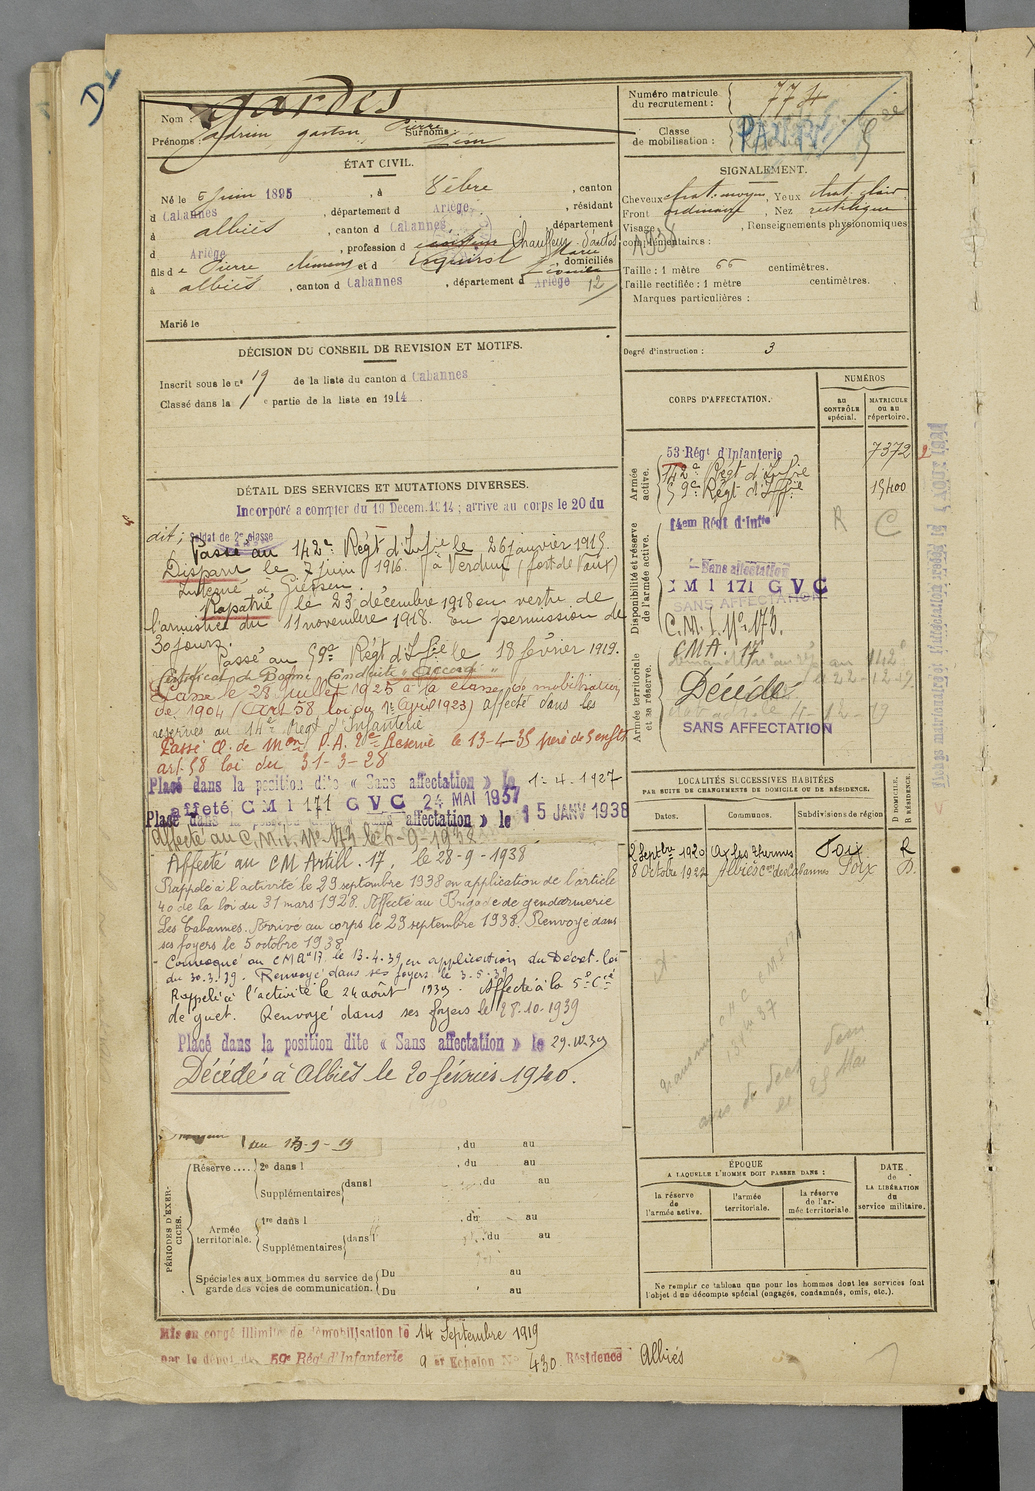 D
Nom : Gardes
Prénoms : Adrien Gaston Pierre Surnoms :
ÉTAT CIVIL.
Né le 5 Juin 1895 , à Vèbre , canton
d Cabannes , département d Ariège , résidant
à Albiès , canton d Cabannes , département
d Ariège , profession d Chauffeur d'autos
fils de Pierre Clément et d Esquirol Marie , domiciliés
à Albiès , canton d Cabannes , département d Ariège 12
Marié le
DÉCISION DU CONSEIL DE REVISION ET MOTIFS.
Inscrit sous le nº 19 de la liste du canton d Cabannes
Classé dans la 1 e partie de la liste en 1914 .
DÉTAIL DES SERVICES ET MUTATIONS DIVERSES.
Incorporé a compter du 19 Decem. 1914 ; arrive au corps le 20 du
dit ; Soldat de 2e classe
Passé au 142e Régt d'Infie le 26 janvier 1915.
Disparu le 7 juin 1916 à Verdun (fort de Vaux)
Interné à Giessen.
Rapatrié le 23 décembre 1918 en vertu de
l'armistice du 11 novembre 1918. En permission de
30 jours.
Passé au 59e Régt d'Infie le 18 février 1919.
Certificat de Bonne Conduite "Accordé"
Passé le 28 juillet 1925 à la classe de mobilisation
de 1904 (Art 58 loi du 1er Avril 1923) affecté dans les
réserves au 14e Régt d'Infanterie
Passé cl. de mon P.A. 2e Réserve le 13-4-35 père de 5 enfts
art. 58 loi du 31-3-28
Placé dans la position dite « Sans affectation » le 1-4-1927
affecté C M I 171 G V C 24 MAI 1937
Placé dans la position dite « Sans affectation » le 15 JANV 1938
Affecté au C.M.I. Nº 173 le 5-9-1938
Affecté au CM Artill. 17, le 28-9-1938
Rappelé à l'activité le 29 septembre 1938 en application de l'article
40 de la loi du 31 mars 1928. Affecté au Brigade de gendarmerie
Les Cabannes. Arrivé au corps le 29 septembre 1938. Renvoyé dans
ses foyers le 5 octobre 1938
Convoqué au CMA 17 le 13.4.39 en application du Décret-loi
du 30.3.39. Renvoyé dans ses foyers le 3.5.39
Rappelé à l'activité le 24 août 1939. Affecté à la 5e Cie
de guet. Renvoyé dans ses foyers le 28.10.1939
Placé dans la position dite « Sans affectation » le 29.10.39
Décédé à Albiès le 20 février 1940.
au 13-9-19 , du au
PÉRIODES D'EXERCICES.
Réserve .... 2e dans l , du au
Supplémentaires dans l , du au
Armée territoriale. 1re dans l , du au
Supplémentaires dans l , du au
Spéciales aux hommes du service de garde des voies de communication. Du au
Du au
Mis en congé illimité de démobilisation le 14 Septembre 1919
par le dépôt du 59e Régt d'Infanterie 9 er Echelon Nº 430 Résidence Albiès
Numéro matricule du recrutement : 774
Classe de mobilisation :
SIGNALEMENT.
Cheveux chat. moyen , Yeux chat. clair
Front ordinaire , Nez rectiligne
Visage , Renseignements physionomiques
complémentaires :
Taille : 1 mètre 66 centimètres.
Taille rectifiée : 1 mètre centimètres.
Marques particulières :
Degré d'instruction : 3
CORPS D'AFFECTATION.
NUMÉROS
au CONTRÔLE spécial.
MATRICULE ou au répertoire.
Armée active.
53 Régt d'Infanterie 7372
142e Régt d'Infie
59e Régt d'Infie 15400
Disponibilité et réserve de l'armée active.
14em Régt d'Infie R C
Sans affectation
C M I 171 G V C
SANS AFFECTATION
C.M.I. Nº 173.
Armée territoriale et sa réserve.
CMA. 17
Décédé
SANS AFFECTATION
LOCALITÉS SUCCESSIVES HABITÉES
PAR SUITE DE CHANGEMENTS DE DOMICILE OU DE RÉSIDENCE.
Dates. Communes. Subdivisions de région D DOMICILE. R RÉSIDENCE.
2 Septbre 1920 Ax les Thermes Foix R
8 Octobre 1922 Albiès con des Cabannes Foix D.
ÉPOQUE
A LAQUELLE L'HOMME DOIT PASSER DANS :
la réserve de l'armée active.
l'armée territoriale.
la réserve de l'armée territoriale
DATE
de
LA LIBÉRATION
du
service militaire.
Ne remplir ce tableau que pour les hommes dont les services font
l'objet d'un décompte spécial (engagés, condamnés, omis, etc.).